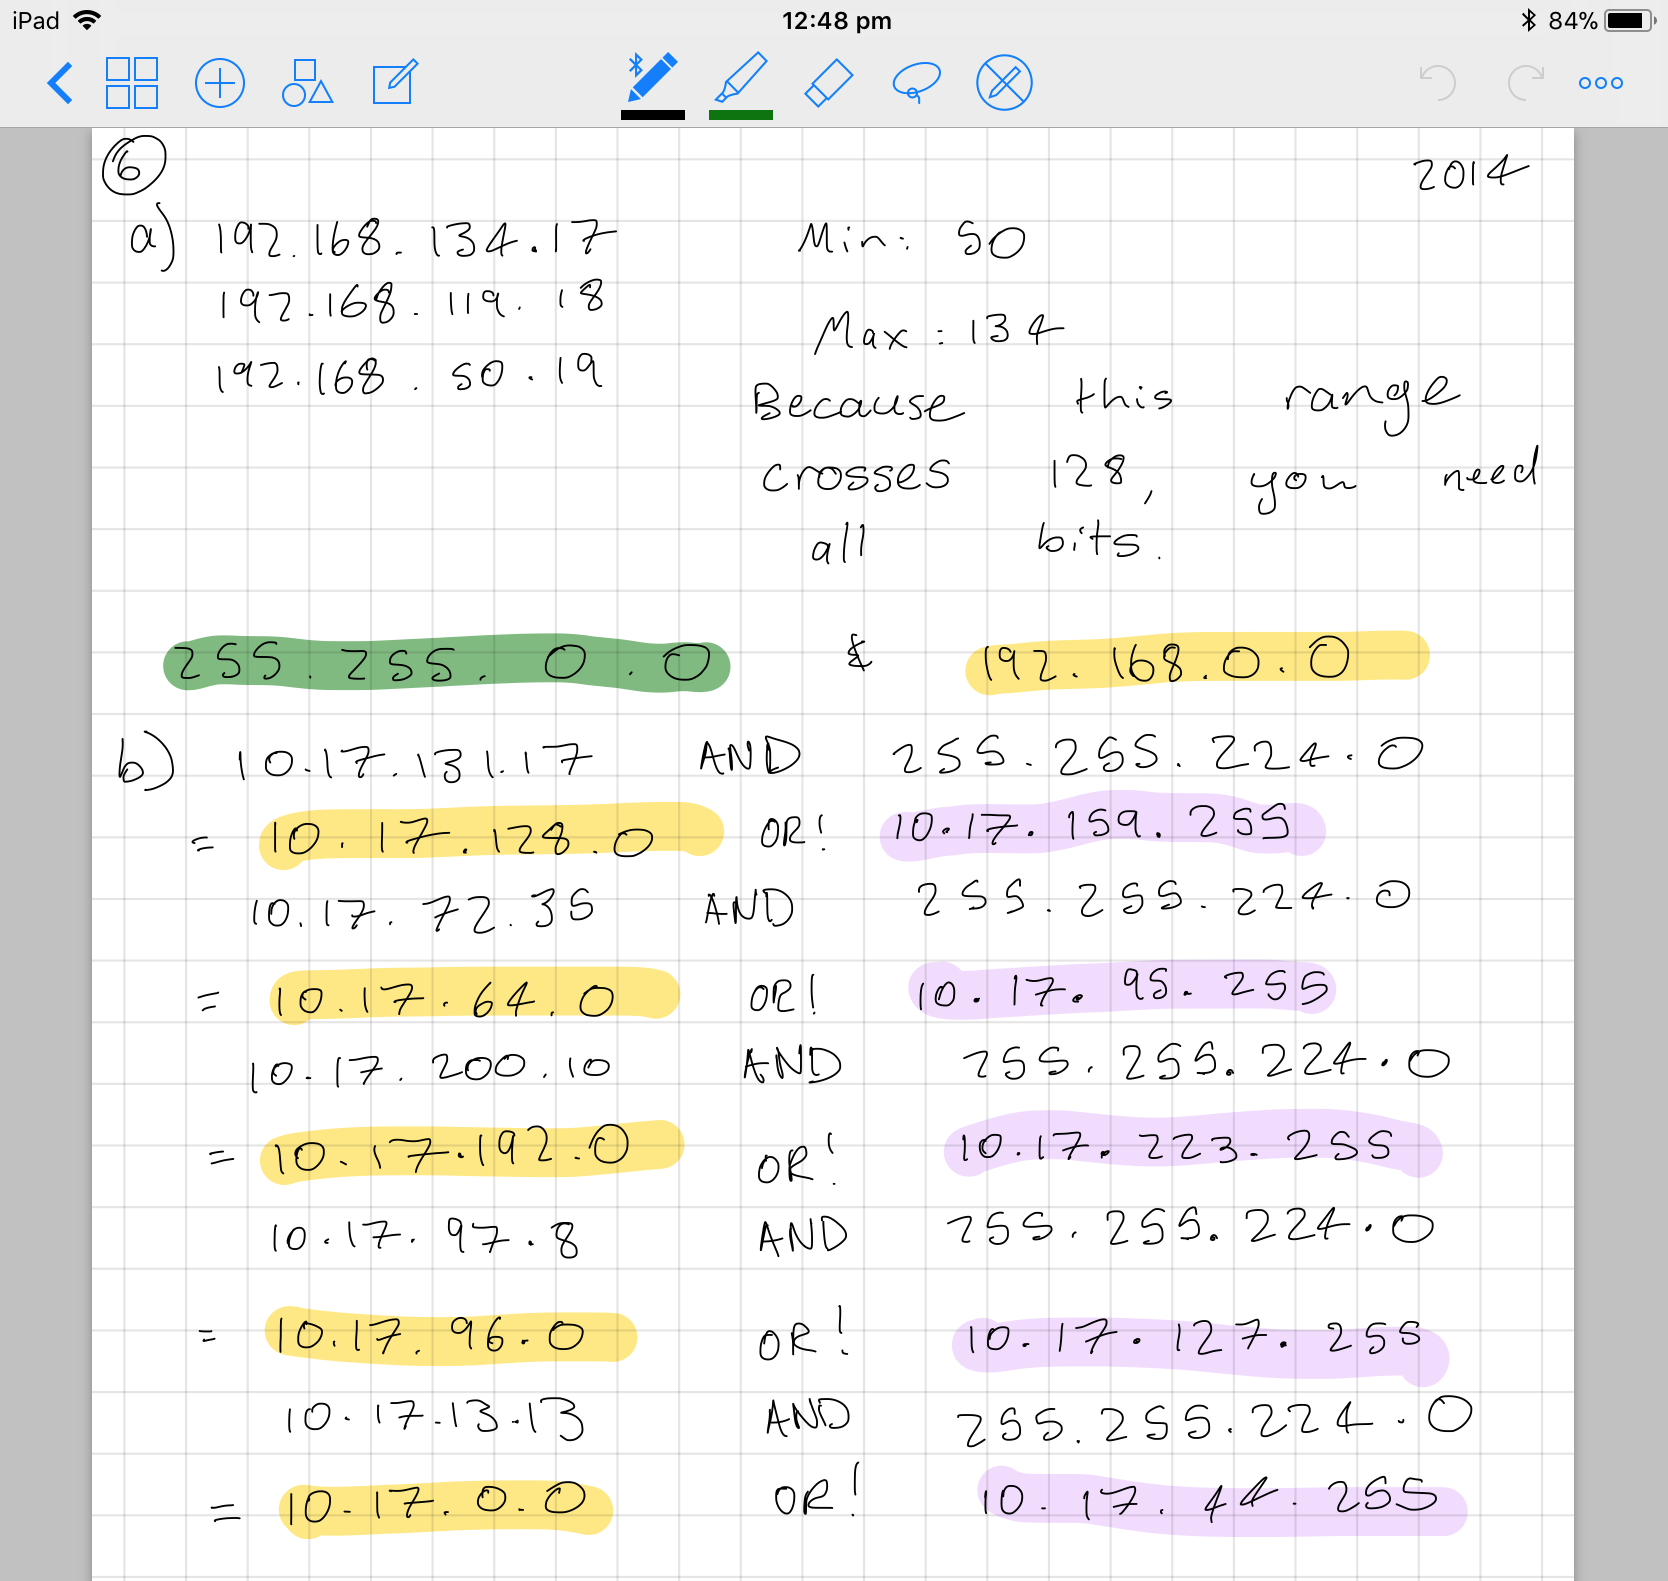 iPad 12:48 pm 84%
6 2014
a) 192.168.134.17 Min: 50
192.168.119.18
Max: 134
192.168.50.19
Because this range
crosses 128, you need
all bits.
255.255.0.0 & 192.168.0.0
b) 10.17.131.17 AND 255.255.224.0
= 10.17.128.0 OR! 10.17.159.255
10.17.72.35 AND 255.255.224.0
= 10.17.64.0 OR! 10.17.95.255
10.17.200.10 AND 255.255.224.0
= 10.17.192.0 OR! 10.17.223.255
10.17.97.8 AND 255.255.224.0
= 10.17.96.0 OR! 10.17.127.255
10.17.13.13 AND 255.255.224.0
= 10.17.0.0 OR! 10.17.44.255